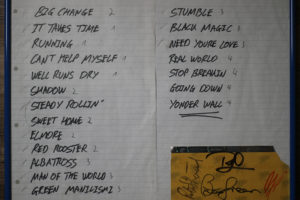 BIG CHANGE 2
IT TAKES TIME 1
RUNNING 1
CAN'T HELP MYSELF 1
WELL RUNS DRY 1
SHADOW 2
STEADY ROLLIN'
SWEET HOME 2
ELMORE 2
RED ROOSTER 2
ALBATROSS 3
MAN OF THE WORLD 3
GREEN MANILISHI 3
STUMBLE 3
BLACK MAGIC 3
NEED YOURE LOVE 3
REAL WORLD 4
STOP BREAKIN 4
GOING DOWN 4
YONDER WALL 4